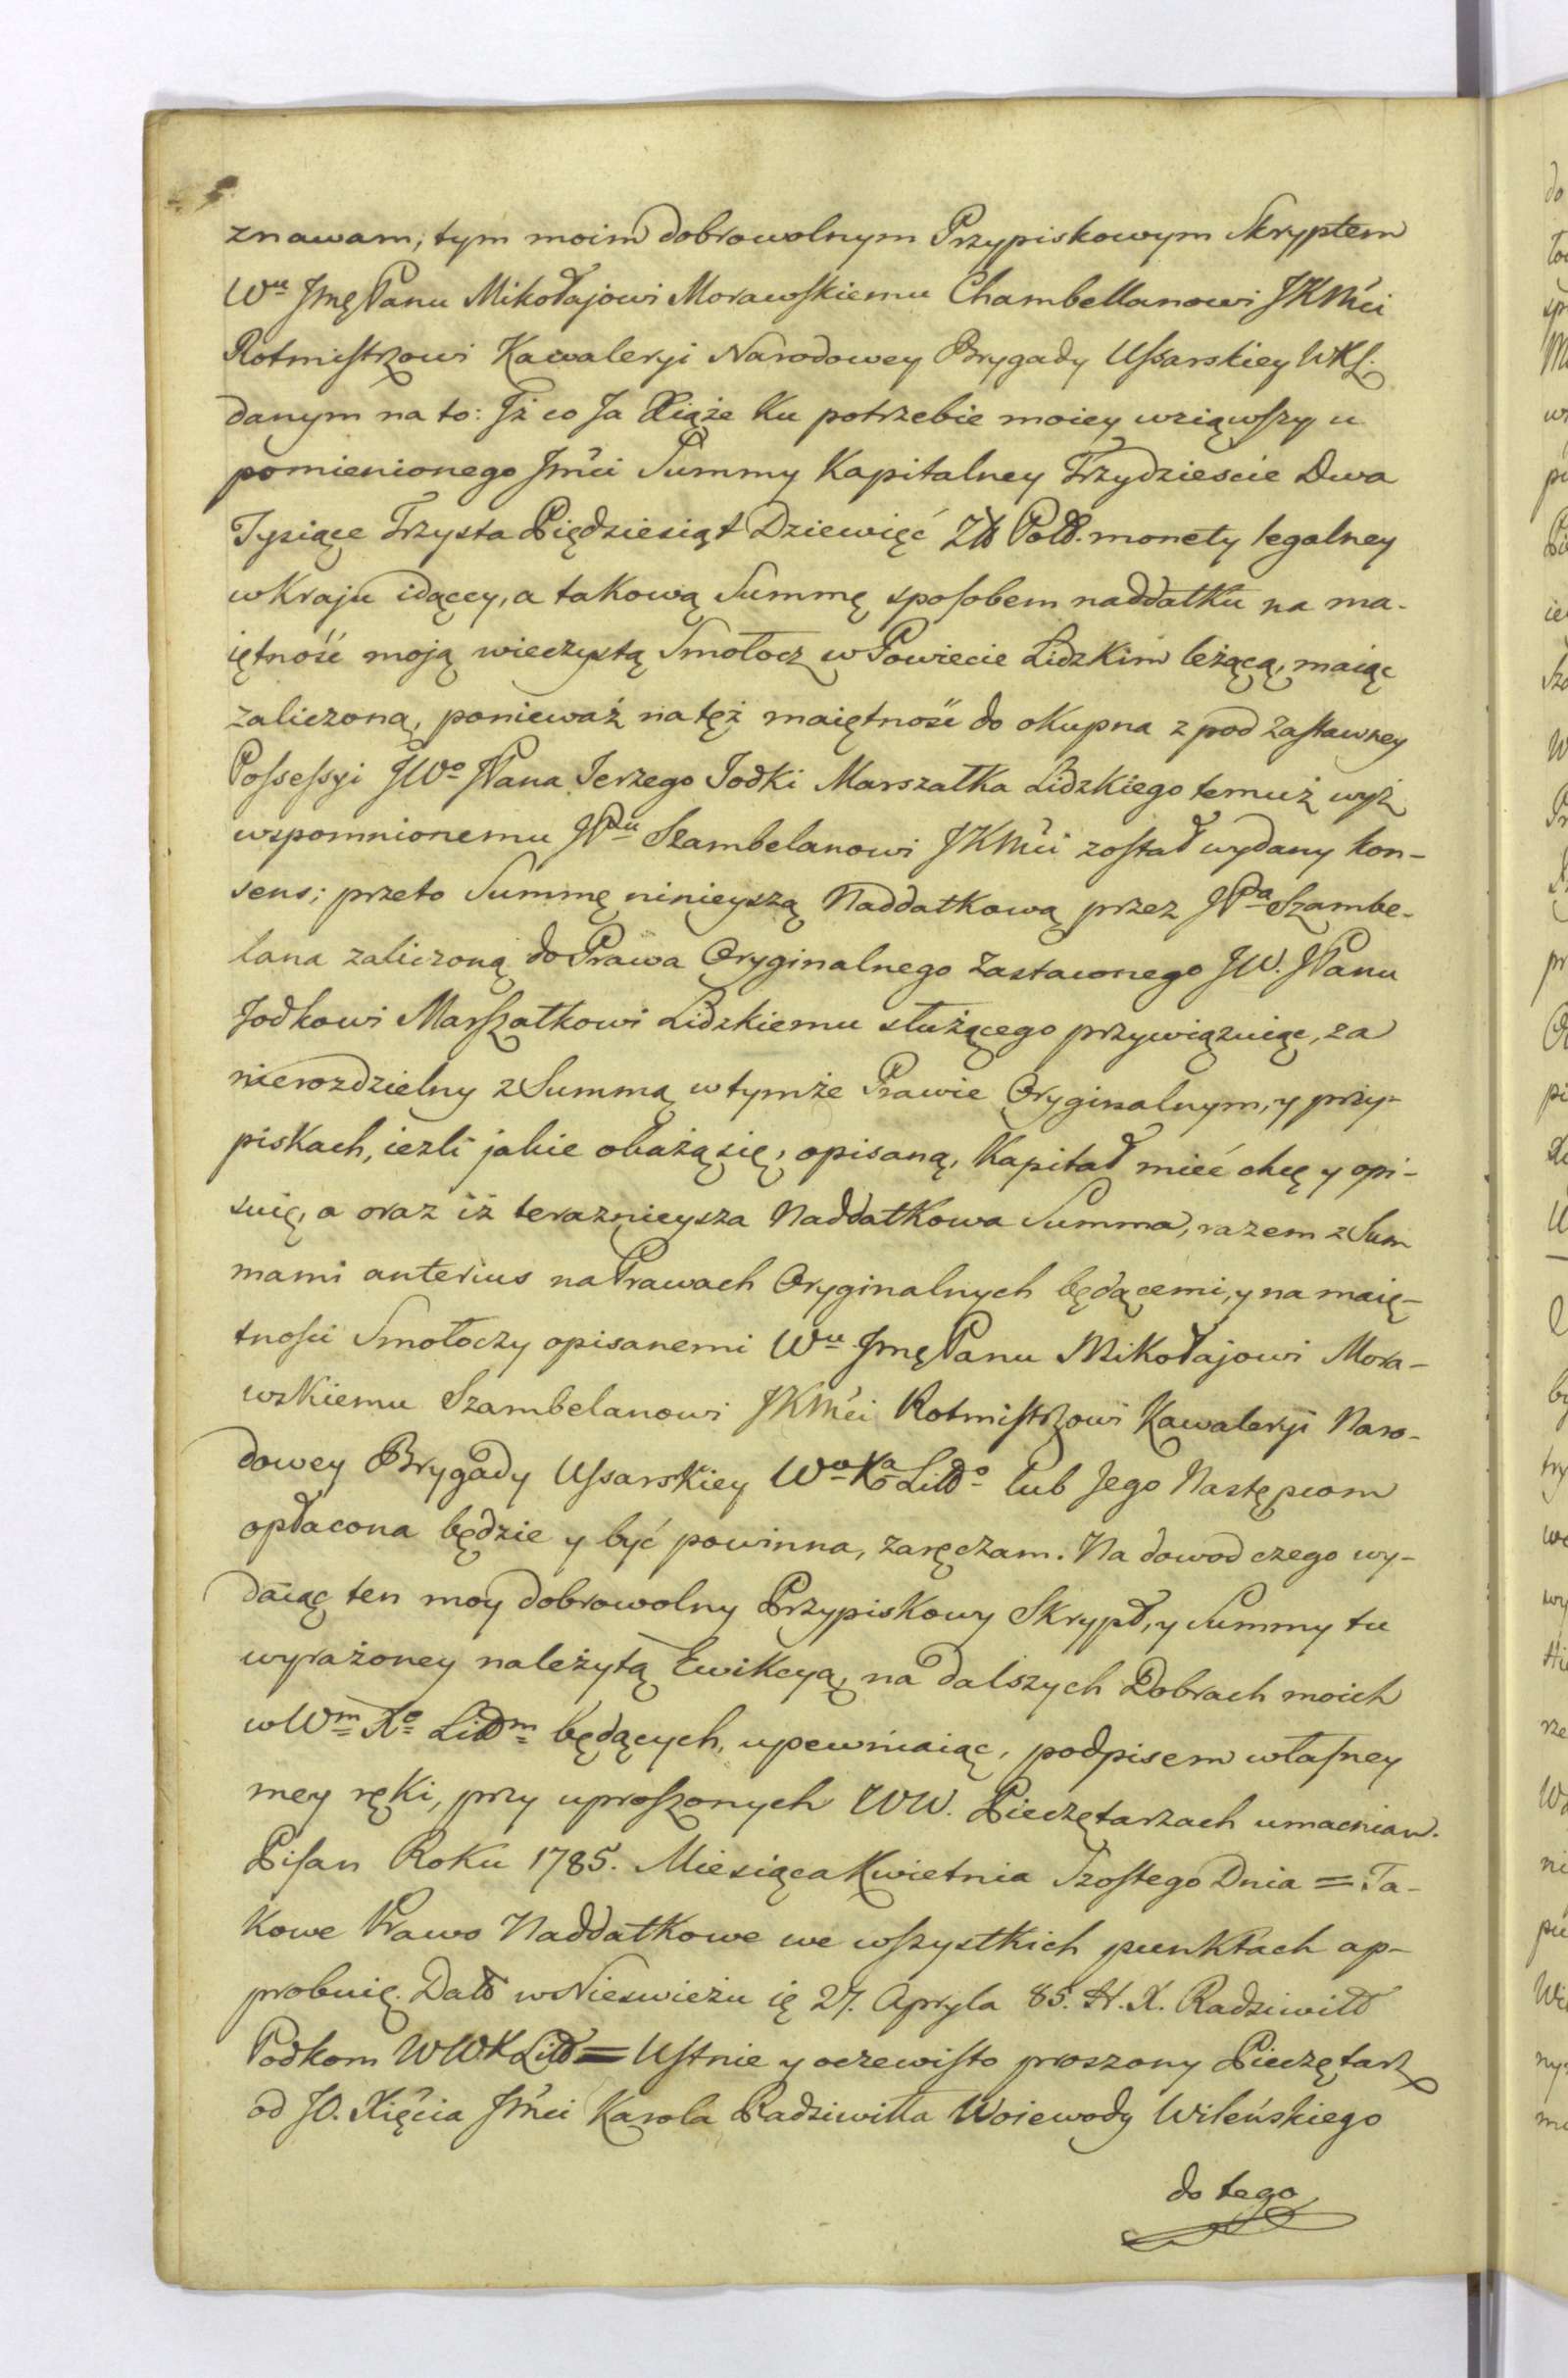 znawam, tym moim dobrowolnym Przypiskowym Skryptem
Wu JmęPanu Mikołajowi Morawskiemu Chambellanowi JKMći
Rotmistrzowi Kawaleryi Narodowey Brygady Ussarskiey WXL.
danym na to: Jż co Ja Xiąże Ku potrzebie moiey wziąwszy u
pomienionego Jmći Summy Kapitalney Trzydzieście Dwa
Tysiące Trzysta Pięďziesiąt Dziewięć Zł Pol. monety legalney
w Kraju idącey, a takową Summę sposobem naddatku na ma-
iętność moją wieczystą Smołocz w Powiecie Lidzkim leżącą, maiąc
zaliczoną, ponieważ na tęż maiętność do okupna z pod Zastawney
Possessyi JWo JPana Jerzego Jodki Marszałka Lidzkiego temuż wyż
wspomnionemu JPanu Szambelanowi JKMći został wydany kon-
sens; przeto Summę ninieyszą Naddatkową przez JPa Szambe-
lana zaliczoną do Prawa Oryginalnego Zastawnego JW. JPanu
Jodkowi Marszałkowi Lidzkiemu służącego przywiązuiąc, za
nierozdzielny z Summą w tymże Prawie Oryginalnym, y przy-
piskach, iezli jakie okażą się, opisaną, Kapitał mieć chcę y opi-
suię, a oraz iż teraznieysza Naddatkowa Summa, razem z Sum
mami anterius na Prawach Oryginalnych będącemi, y na maię-
tności Smołoczy opisanemi Wu JmęPanu Mikołajowi Mora-
wskiemu Szambelanowi JKMći Rotmistrzowi Kawaleryi Naro-
dowey Brygady Ussarskiey Wo Xa Litto lub Jego Następcom
opłacona będzie y być powinna, zaręczam. Na dowod czego wy-
daiąc ten moy dobrowolny Przypiskowy Skrypt, y Summy tu
wyrażoney należytą Ewikcyą, na dalszych Dobrach moich
w Wm Xe Littm będących, upewniaiąc, podpisem własney
mey ręki, przy uproszonych WW. Pieczętarzach umacniam.
Pisan Roku 1785. Miesiąca Kwietnia Szostego Dnia = Ta-
kowe Prawo Naddatkowe we wszystkich punktach ap-
probuię. Datt w Nieswieżu 27. Apryla 85. H. X. Radziwiłł
Podkom WWXLitt = Ustnie y oczewisto proszony Pieczętarz
od JO. Xięcia Jmći Karola Radziwiłła Woiewody Wileńskiego
do tego